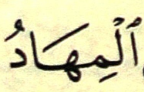 ٱلْمِهَادُ